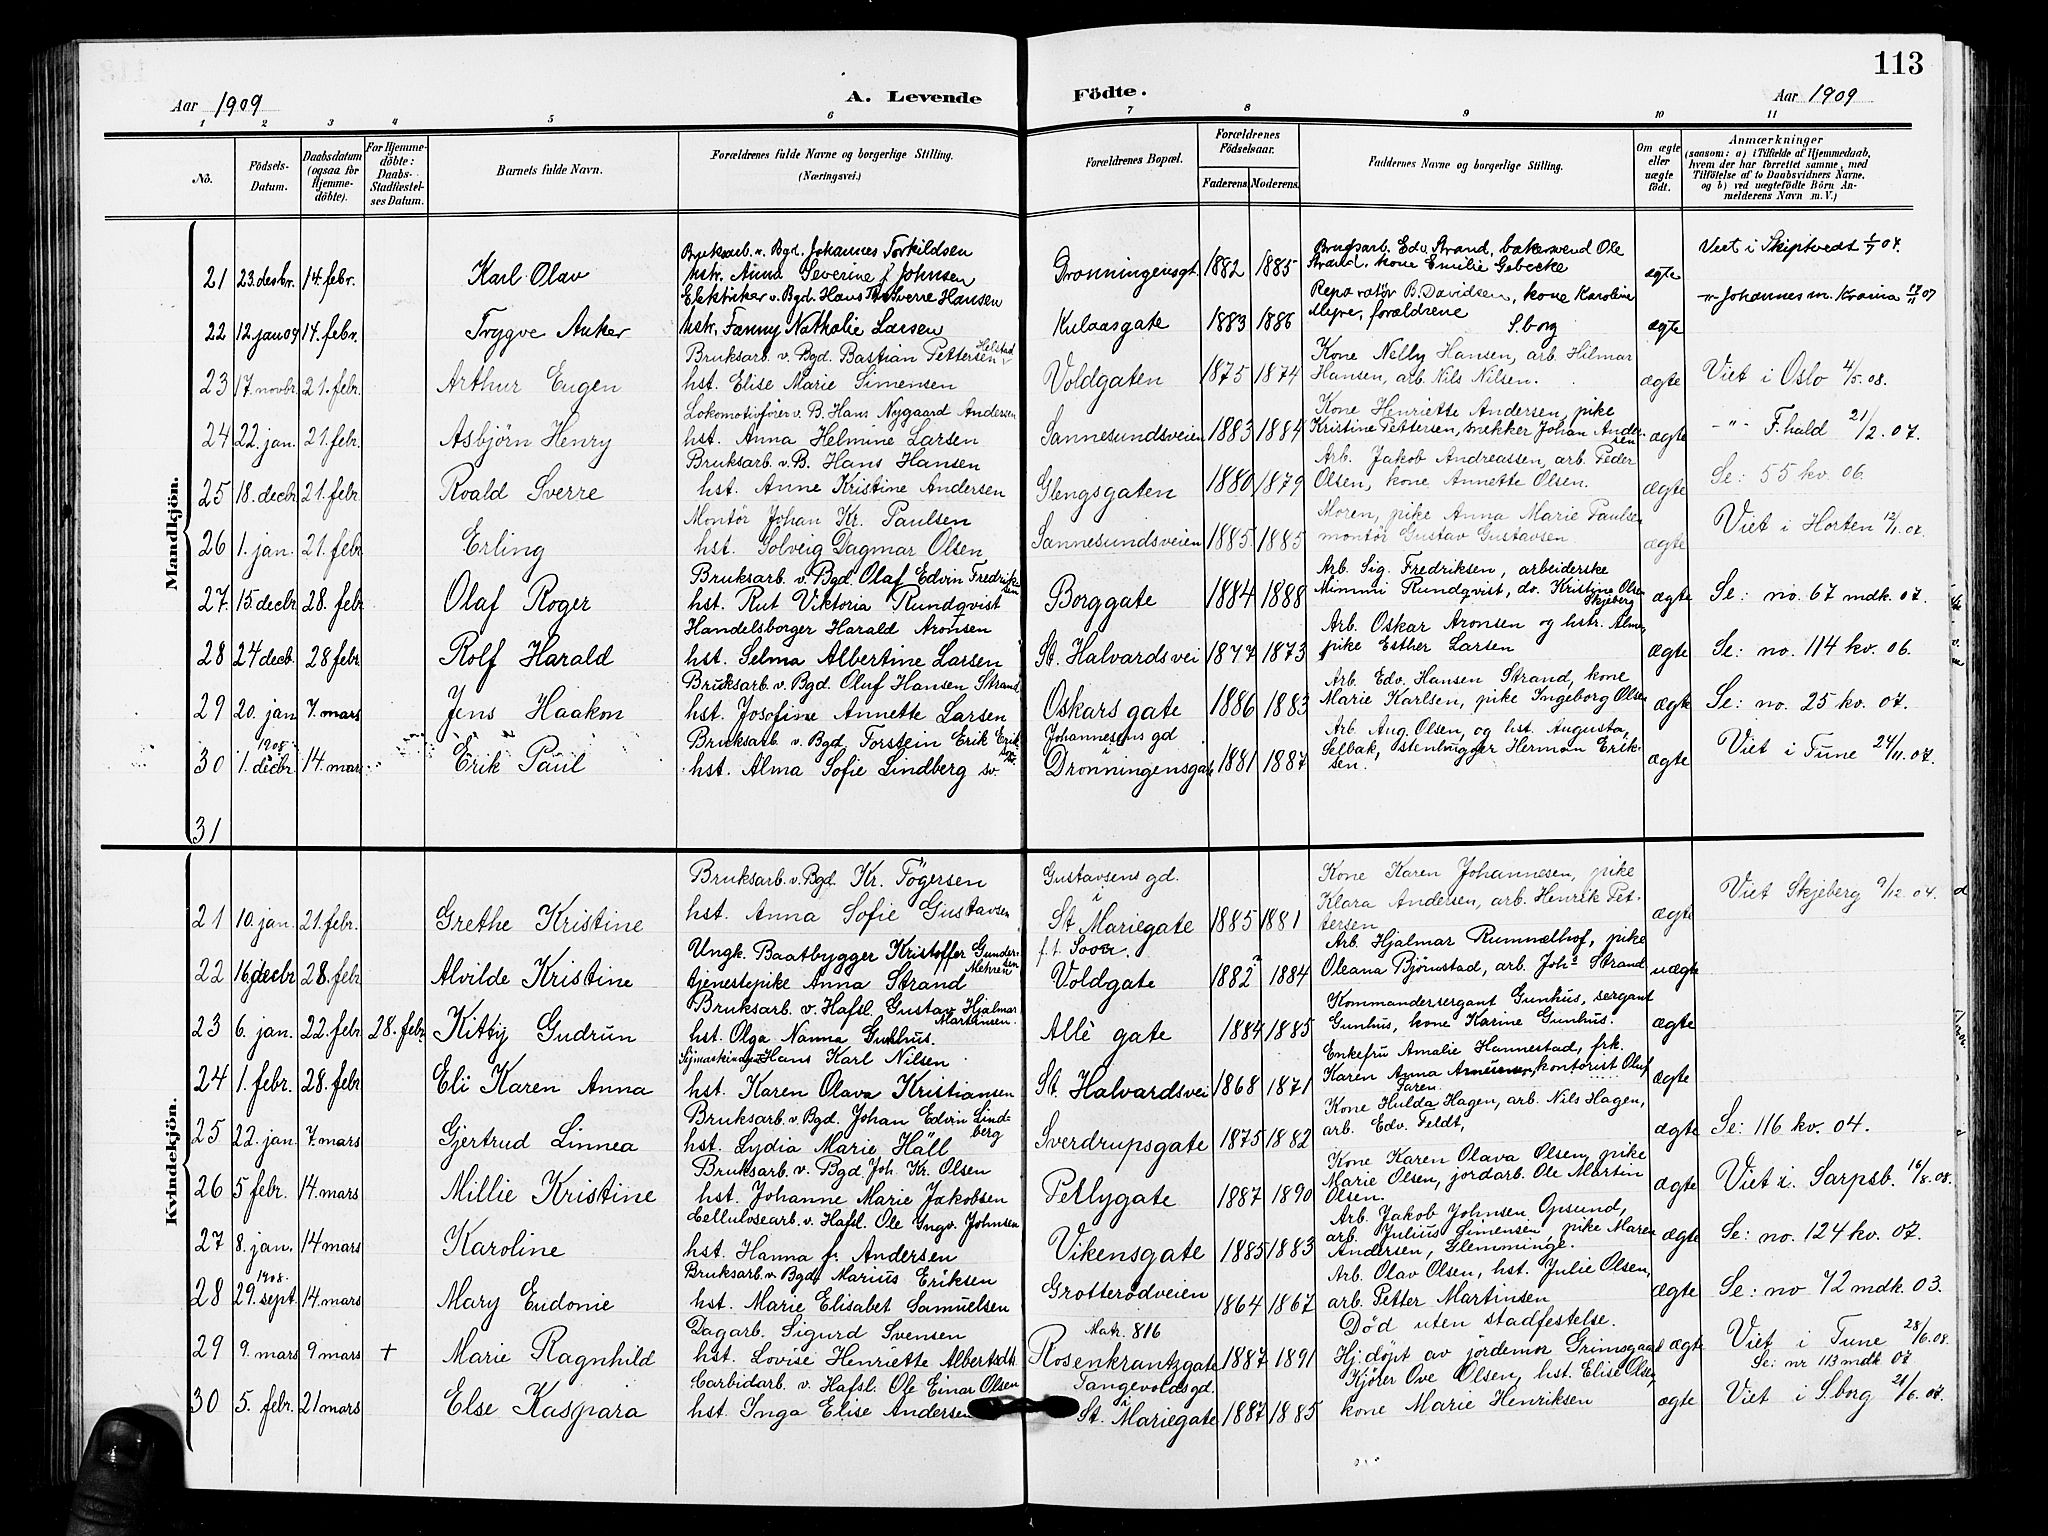 113
Aar 1909 A. Levende Födte. Aar 1909
1 2 3 4 5 6 7 8 9 10 11
No. Födsels-Datum. Daabsdatum (ogsaa for Hjemme-döbte). For Hjemme-döbte: Daabs-Stadfæstel-ses Datum. Barnets fulde Navn. Forældrenes fulde Navne og borgerlige Stilling. (Næringsvei.) Forældrenes Bopæl. Forældrenes Födselsaar. Faderens. Moderens. Faddernes Navne og borgerlige Stilling. Om ægte eller uægte födt. Anmærkninger (saasom: a) i Tilfælde af Hjemmedaab, hvem der har forrettet samme, med Tilföielse af to Daabsvidners Navne, og b) ved uægtefödte Börn An-melderens Navn m. V.)
Mandkjön.
Bruksarb. v. Bgd. Johannes Torkildsen Brugsarb. Edv. Strand, bakersvend Ole Viet i Skiptvedt 1/7 07.
21 23. desbr. 14. febr. Karl Olav hstr. Anna Severine f. Johnsen Dronningensgt. 1882 1885 Strand, kone Emilie Gebecke ægte
Elektriker v. Bgd. Hans Sverre Hansen Reparatör B. Davidsen, kone Karoline -"- Johannes m. Krania
22 12 jan 09 14. febr. Trygve Anker hstr. Fanny Nathalie Larsen Kulaasgate 1883 1886 Meyre, forældrene S.borg ægte
Bruksarb. v. Bgd. Bastian Pettersen Helstad Kone Nelly Hansen, arb. Hilmar
23 17. novbr. 21. febr. Arthur Eugen hst. Elise Marie Simensen Voldgaten 1875 1874 Hansen, arb. Nils Nilsen. ægte Viet i Oslo 4/5. 08.
Lokomotivförer v. B. Hans Nygaard Andersen Kone Henriette Andersen, pike
24 22. jan. 21. febr. Asbjörn Henry hst. Anna Helmine Larsen Sannesundsveien 1883 1884 Kristine Pettersen, snekker Johan Andersen ægte -"- F.hald 21/2. 07.
Bruksarb. v. B. Hans Hansen Arb. Jakob Andreassen, arb. Peder
25 18. decbr. 21. febr. Roald Sverre hst. Anne Kristine Andersen Glengsgaten 1880 1879 Olsen, kone Annette Olsen. ægte Se: 55 kv. 06.
Montör Johan Kr. Paulsen Moren, pike Anna Marie Paulsen
26 1. jan. 21. febr. Erling hst. Solveig Dagmar Olsen Sannesundsveien 1885 1885 montör Gustav Gustavsen ægte Viet i Horten 12/1. 07.
Bruksarb. v. Bgd. Olaf Edvin Fredriksen Arb. Sig. Fredriksen, arbeiderske
27. 15. decbr. 28. febr. Olaf Roger hst. Rut Viktoria Rundqvist Borggate 1884 1888 Mimmi Rundqvist, do. Kristine Olsen Skjeberg ægte Se: no. 67 mdk. 07.
Handelsborger Harald Aronsen Arb. Oskar Aronsen og hstr. Alma,
28 24 decb. 28 febr. Rolf Harald hst. Selma Albertine Larsen St. Halvardsvei 1877 1873 pike Esther Larsen ægte Se: no. 114 kv. 06.
Bruksarb. v. Bgd. Oluf Hansen Strand Arb. Edv. Hansen Strand, kone
29 20. jan 7. mars Jens Haakon hst. Josefine Annette Larsen Oskars gate 1886 1883 Marie Karlsen, pike Ingeborg Olsen ægte Se: no. 25 kv. 07.
Bruksarb. v. Bgd. Torstein Erik Eriksen Johannesens gd Arb. Aug. Olsen, og hst. Augusta,
30 1. decbr. 1908 14. mars Erik Paul hst. Alma Sofie Lindberg sv. i Dronningensgate 1881 1887 Selbak, stenhugger Herman Eriksen. ægte Viet i Tune 24/11. 07.
31
Kvindekjön.
Bruksarb. v. Bgd. Kr. Tögersen Gustavsens gd. Kone Karen Johannesen, pike
21 10. jan. 21. febr. Grethe Kristine hst. Anna Sofie Gustavsen i St. Mariegate 1885 1881 Klara Andersen, arb. Henrik Pettersen ægte Viet Skjeberg 9/12. 04.
Ungk. Baatbygger Kristoffer Gundersen Mehren f.t. Soon. Arb. Hjalmar Rummelhof, pike
22 16. decbr 28. febr. Alvilde Kristine tjenestepike Anna Strand Voldgate 1882 1884 Oleana Björnstad, arb. Johs Strand uægte
Bruksarb. v. Hafsl. Gustav Hjalmar Martinsen. Kommandersergant Gunhus, sergant
23 6. jan. 22. febr 28. febr. Kitty Gudrun hst. Olga Nanna Gunhus. Allè gate 1884 1885 Gunhus, kone Karine Gunhus. ægte
Hans Karl Nilsen Enkefru Amalie Hannestad, frk.
24 1. febr. 28. febr Eli Karen Anna hst. Karen Olava Kristiansen St. Halvardsvei 1868 1871 Karen Anna kontorist Oluf Faren. ægte
Bruksarb. v. Bgd. Johan Edvin Lindberg Kone Hulda Hagen, arb. Nils Hagen,
25 22. jan. 7. mars Gjertrud Linnea hst. Lydia Marie Häll Sverdrupsgate 1875 1882 arb. Edv. Feldt, ægte Se: 116 kv. 04.
Bruksarb. v. Bgd Joh. Kr. Olsen Kone Karen Olava Olsen, pike
26 5 febr. 14. mars Millie Kristine hst. Johanne Marie Jakobsen Pellygate 1887 1890 Marie Olsen, jordarb. Ole Martin Olsen. ægte Viet i. Sarpsb. 16/8. 08.
Cellulosearb. v. Hafsl. Ole Ingv. Johnsen Arb. Jakob Johnsen Opsund,
27 8. jan. 14 mars Karoline hst. Hanna f. Andersen Vikensgate 1885 1883 arb. Julius Simensen, pike Maren Andersen, Glemminge. ægte Se: no. 124 kv. 07.
Bruksarb. v. Bgd. Marius Eriksen Arb. Olav Olsen, hst. Julie Olsen,
28 29. sept. 1908. 14. mars Mary Eudonie hst. Marie Elisabet Samuelsen Grotterödveien 1864 1867 arb. Petter Martinsen ægte Se: no 72 mdk. 03.
Dagarb. Sigurd Svensen Matr. 816 Död uten stadfestelse.
29 9. mars 9 mars + Marie Ragnhild hst. Lovise Henriette Albertsdt. Rosenkrantzgate 1887 1891 Hj. döpt av jordemor Grimsgaard ægte Viet i Tune 28/6. 08. Se: nr 113 mdk 07
Carbidarb. v. Hafsl. Ole Einar Olsen Tangevoldsgd. Kjörer Ove Olsen, hst. Elise Olsen,
30 5. febr. 21 mars Else Kaspara hst. Inga Elise Andersen i St. Mariegate 1887 1885 kone Marie Henriksen ægte Viet i S.borg 21/6. 07.